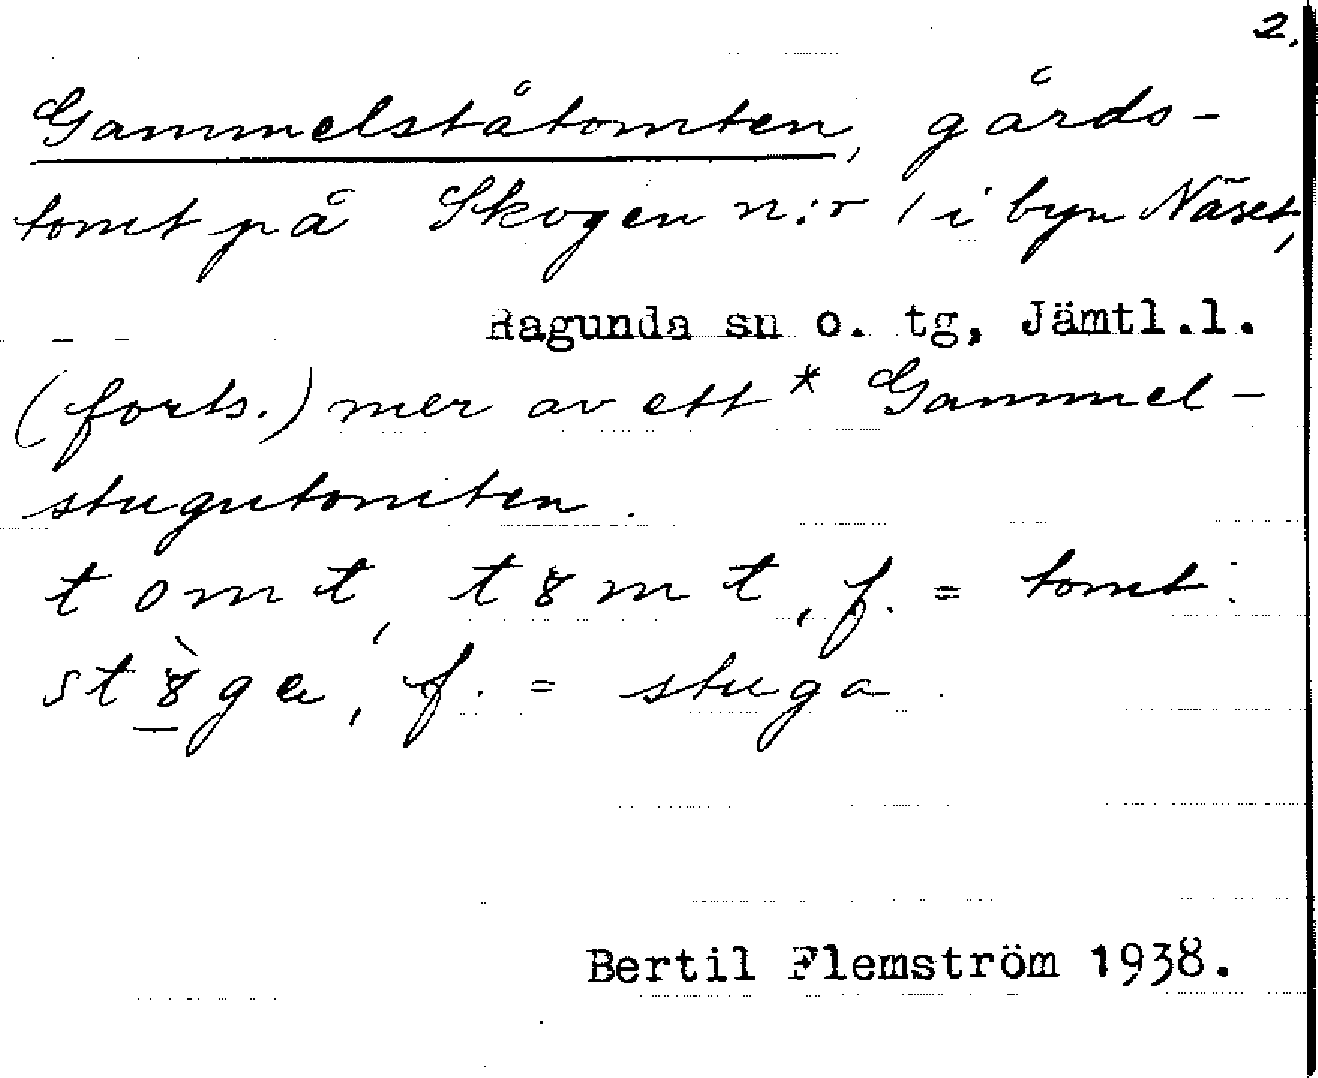 2.
Gammelståtomten, gårds-
tomt på Skogen n:r 1 i byn Näset,
Ragunda sn o. tg, Jämtl.l.
(forts.) mer av ett * Gammel-
stugutomten.
tomt, tȣmt, f. = tomt.
stȣ̱̀ga, f. = stuga.
Bertil Flemström 1938.